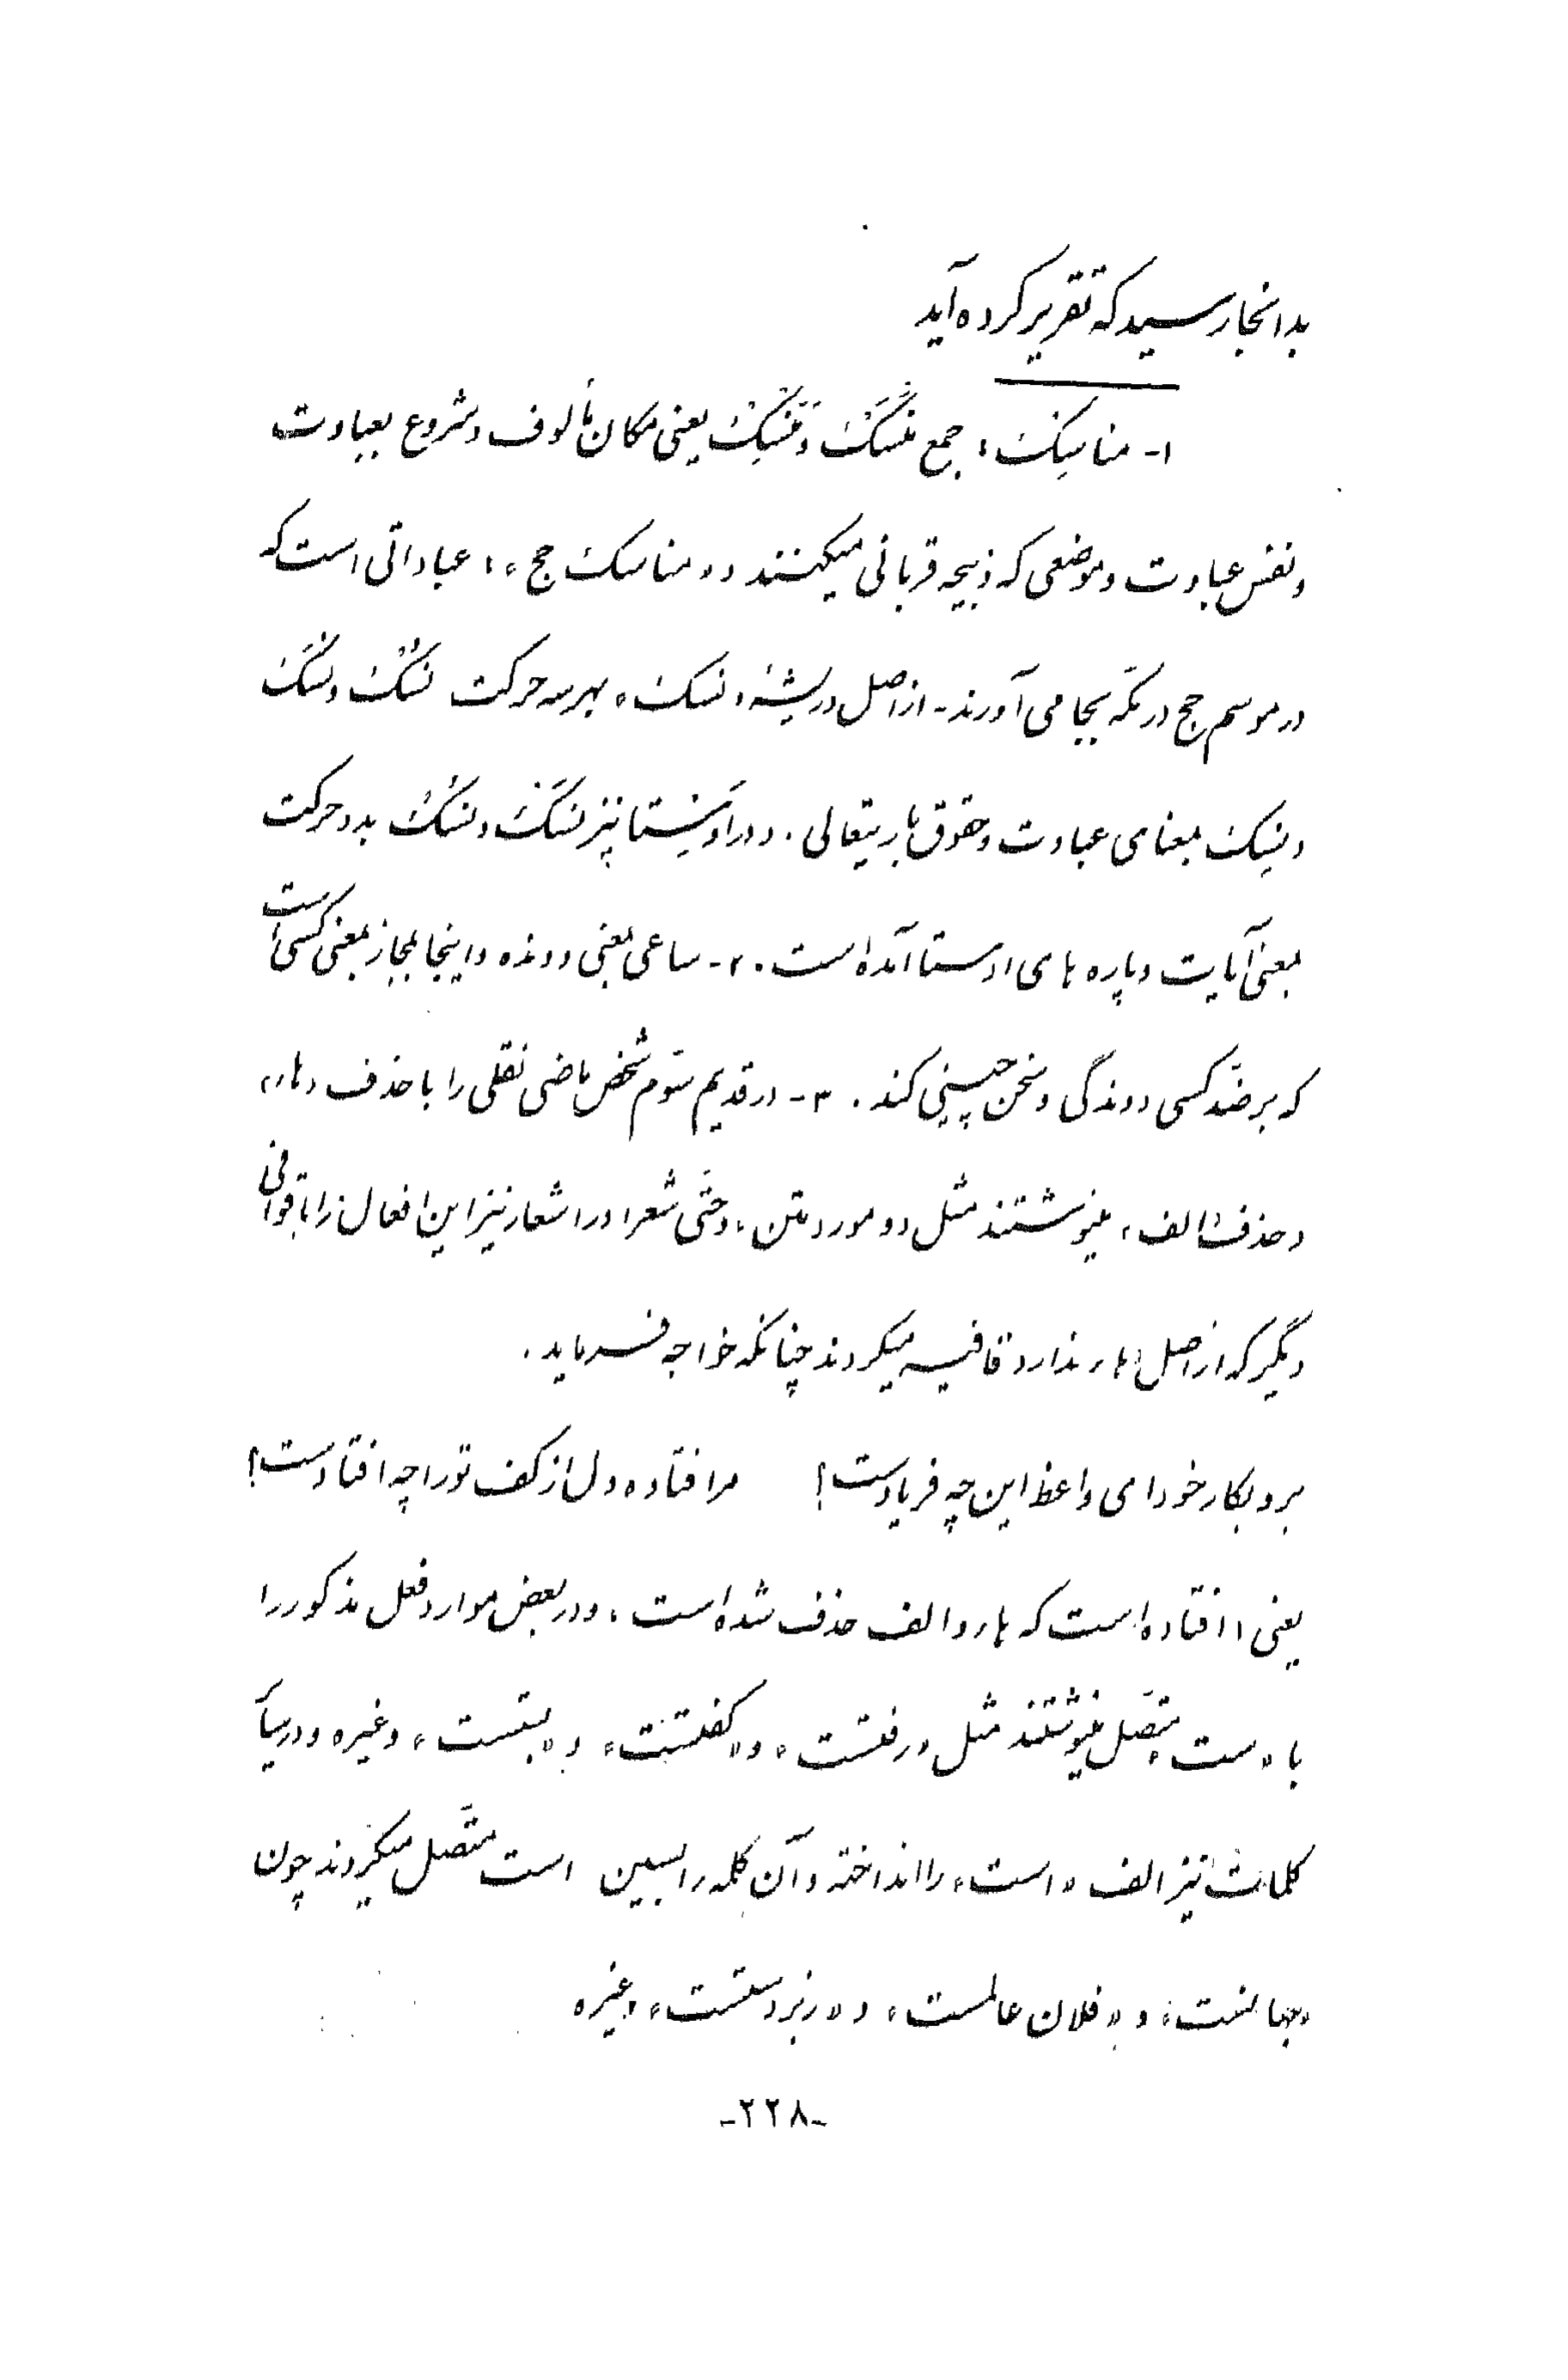 بدانجا رسید که تقریر کرده آید
۱- مناسِک، جمع مَنسَکْ و مَنسِکْ یعنی مکان مألوف و شروع بعبادت
و نفس عبادت و موضعی که ذبیحه قربانی میکنند و «مناسک حج»، عباداتی است که
در موسم حج در مکّه بجا می‌آورند - از اصل و ریشهٔ «نسک» بهر سه حرکت نُسُک و نَسَک
و نِسِک بمعنای عبادت و حقوق باریتعالی. و در اوِیستا نیز نَسَک و نُسُک بدو حرکت
بمعنی آیات و پاره‌های اوستا آمده است. ۲- ساعی بمعنی دونده و اینجا بمجاز بمعنی کسی است
که بر ضدّ کسی دوندگی و سخن چینی کند. ۳- در قدیم سوّم شخص ماضی نقلی را با حذف «هاء»
و حذف «الف» مینوشتند مثل دو مورد متن، و حتّی شعرا در اشعار نیز این افعال را با قوافی
دیگر که از اصل «هاء» ندارد قافیه میکردند چنانکه خواجه فرماید.
برو بکار خود ای واعظ این چه فریادست؟ مرا فتاده دل از کف تو را چه افتادست؟
یعنی افتاده است که هاء و الف حذف شده است، و در بعض موارد فعل مذکور را
با «ست» متّصل مینوشتند مثل «رفتست» و «گفتست» و «بتست» و غیره و در سایر
کلمات نیز الف «است» را انداخته و آن کلمه را بسین است متّصل میکردند چون
«بجانست» و «فلان عالمست» و «زبردستست» و غیره
-۲۲۸-